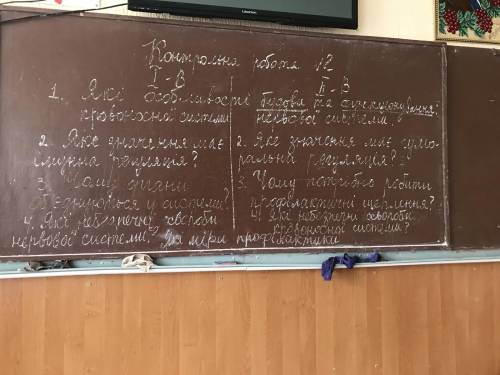 Контрольна робота №2
І - В
ІІ - В
1. Які особливості будова та функціонування:
кровоносної системи
нервової системи.
2. Яке значення має
імунна регуляція?
3. Чому органи
об'єднуються у системи?
4. Які небезпечні хвороби
нервової системи? Їх міри профілактики
2. Яке значення має гумо-
ральна регуляція?
3. Чому потрібно робити
профілактичні щеплення?
4. Які небезпечні хвороби
кровоносної системи?